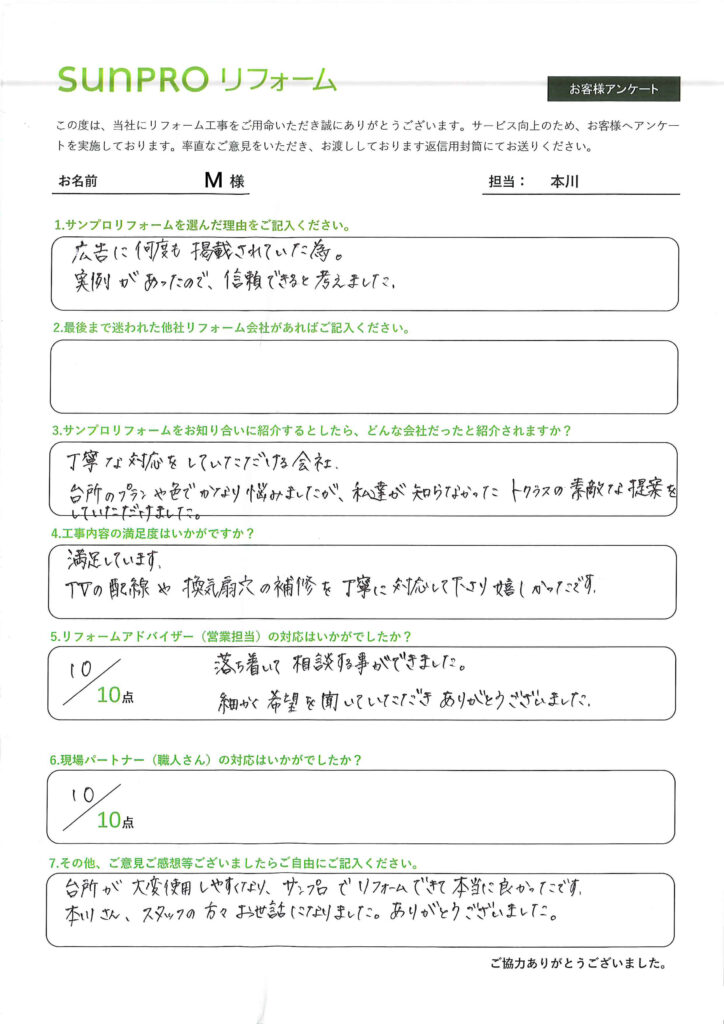 sunPRO リフォーム
お客様アンケート
この度は、当社にリフォーム工事をご用命いただき誠にありがとうございます。サービス向上のため、お客様へアンケー
トを実施しております。率直なご意見をいただき、お渡ししております返信用封筒にてお送りください。
お名前 M 様 担当： 本川
1.サンプロリフォームを選んだ理由をご記入ください。
広告に何度も掲載されていた為。
実例があったので、信頼できると考えました.
2.最後まで迷われた他社リフォーム会社があればご記入ください。
3.サンプロリフォームをお知り合いに紹介するとしたら、どんな会社だったと紹介されますか？
丁寧な対応をしていただける会社.
台所のプランや色でかなり悩みましたが、私達が知らなかったトクラスの素敵な提案を
していただけました。
4.工事内容の満足度はいかがですか？
満足しています.
TVの配線や換気扇穴の補修を丁寧に対応して下さり嬉しかったです.
5.リフォームアドバイザー（営業担当）の対応はいかがでしたか？
10/10点 落ち着いて相談する事ができました。
細かく希望を聞いていただきありがとうございました.
6.現場パートナー（職人さん）の対応はいかがでしたか？
10/10点
7.その他、ご意見ご感想等ございましたらご自由にご記入ください。
台所が大変使用しやすくなり、サンプロでリフォームできて本当に良かったです.
本川さん、スタッフの方々お世話になりました。ありがとうございました。
ご協力ありがとうございました。